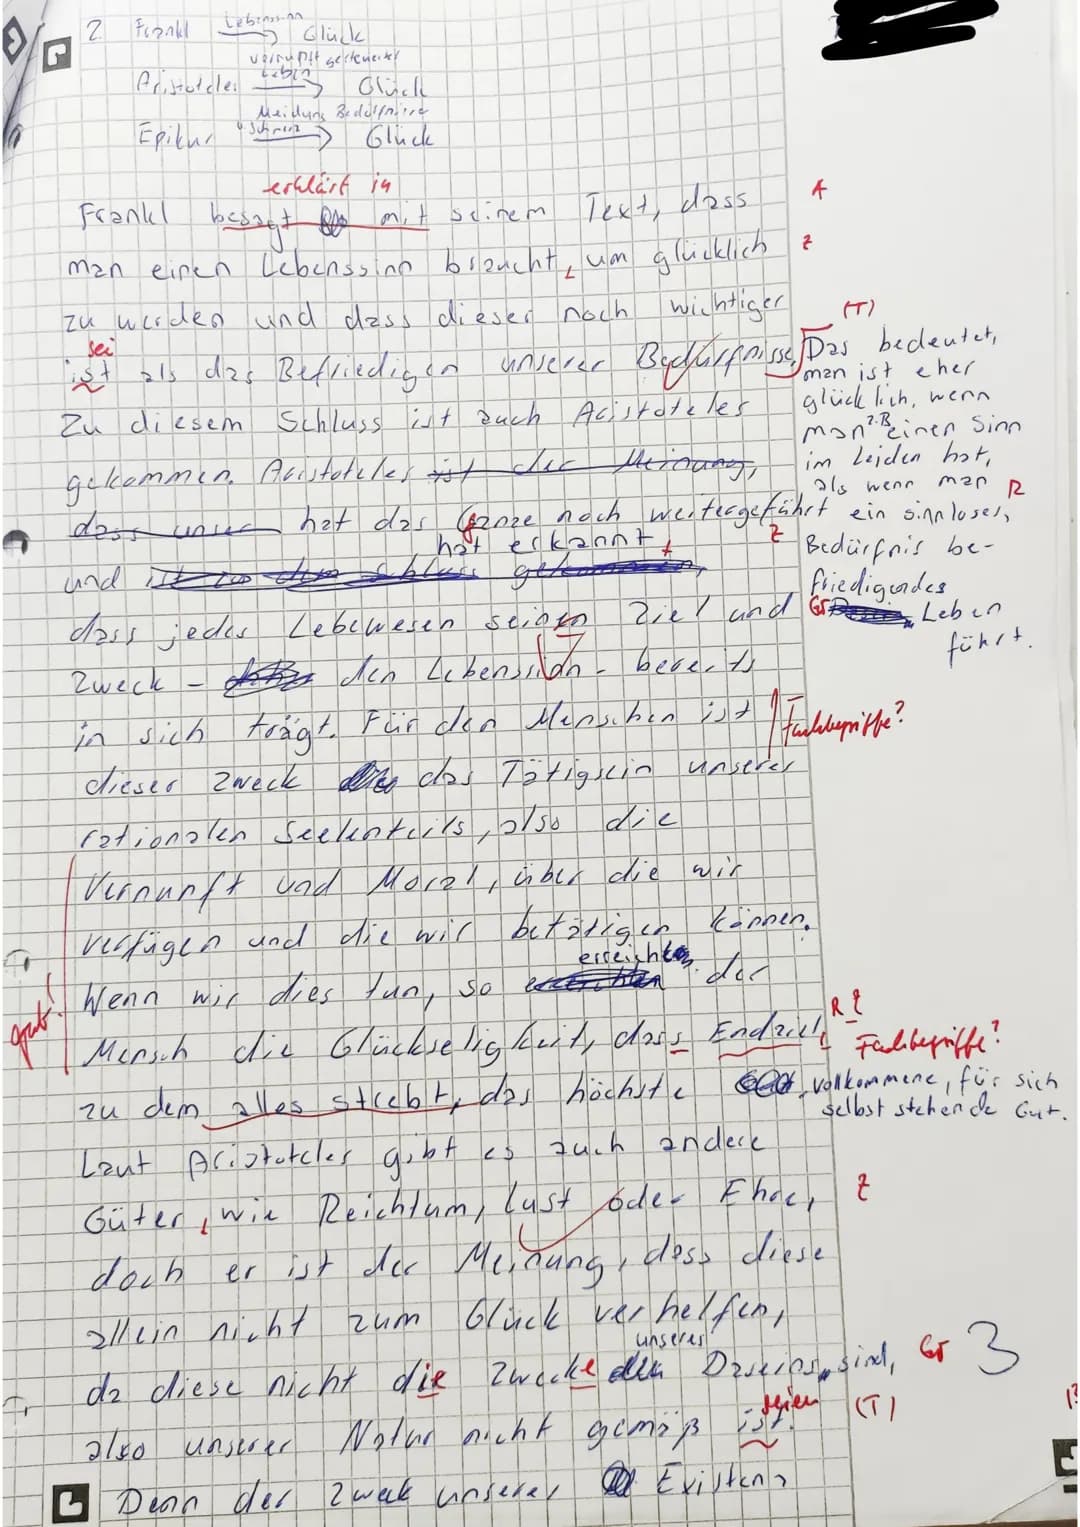 2. Frankl Lebenssinn → Glück
Aristoteles vernunft gesteuertes Leben → Glück
Epikur Meidung Bedürfnisse u. Schmerz → Glück
erklärt in
Frankl besagt mit seinem Text, dass A
man einen Lebenssinn braucht, um glücklich Z
zu werden und dass dieser noch wichtiger (T)
sei
ist als das Befriedigen unserer Bedürfnisse.
Das bedeutet,
man ist eher
glücklich, wenn
man z.B. einen Sinn
im Leiden hat,
als wenn man R
ein sinnloses, Z
Bedürfnis be-
friedigendes
Gr Leben
führt.
Zu diesem Schluss ist auch Aristoteles
gekommen. Aristoteles ist der Meinung,
dass hat das Ganze noch weitergeführt
hat erkannt
und ist zu dem Schluss gekommen,
dass jedes Lebewesen seinen Ziel und
Zweck - den Lebenssinn - bereits
in sich trägt. Für den Menschen ist Fachbegriffe?
dieser Zweck das Tätigsein unseres
rationalen Seelenteils, also die
Vernunft und Moral, über die wir
verfügen und die wir betätigen können.
erreicht
Wenn wir dies tun, so der
gut!
Mensch die Glückseligkeit, dass Endziel, R Z Fachbegriffe?
zu dem alles strebt, das höchste vollkommene, für sich
selbst stehende Gut.
Laut Aristoteles gibt es auch andere
Güter, wie Reichtum, Lust oder Ehre, Z
doch er ist der Meinung, dass diese
allein nicht zum Glück verhelfen,
unseres
da diese nicht die Zwecke Daseins sind, Gr 3
seien
also unserer Natur nicht gemäß ist. (T)
Denn der Zweck unserer Existenz